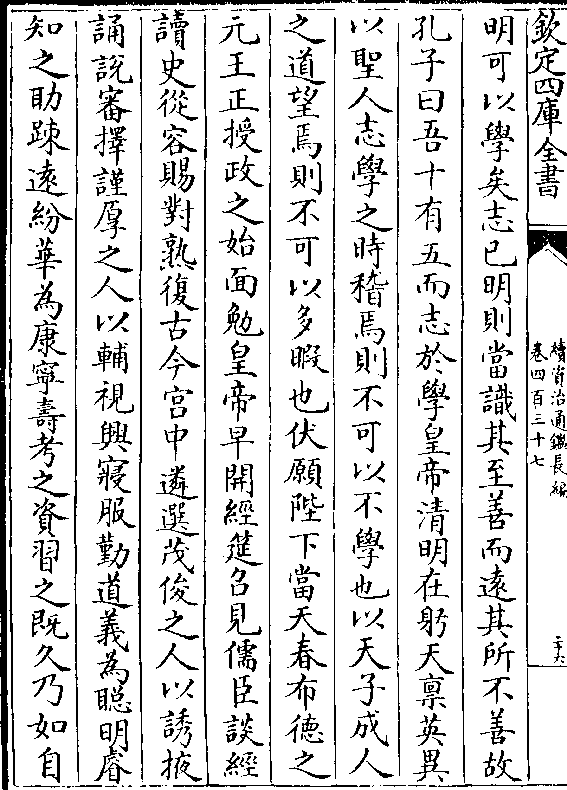 欽定四庫全書
續資治通鑑長編
卷四百三十七
二十六
明可以學矣志已明則當識其至善而遠其所不善故
孔子曰吾十有五而志於學皇帝清明在躬天禀英異
以聖人志學之時稽焉則不可以不學也以天子成人
之道望焉則不可以多暇也伏願陛下當天春布德之
元王正授政之始面勉皇帝早開經筵召見儒臣談經
讀史從容賜對熟復古今宫中遴選茂俊之人以誘掖
誦說審擇謹厚之人以輔視興寢服勤道義為聰明睿
知之助踈遠紛華為康寧壽考之資習之既久乃如自